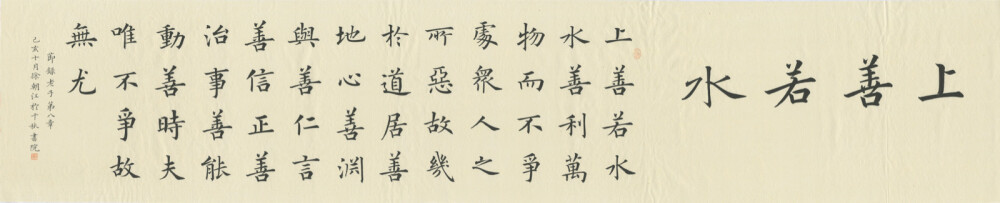 上善若水
上善若水
水善利萬
物而不爭
處衆人之
所惡故幾
於道居善
地心善渊
與善仁言
善信正善
治事善能
動善時夫
唯不爭故
無尤
節錄老子第八章
己亥十月徐朝江於書院